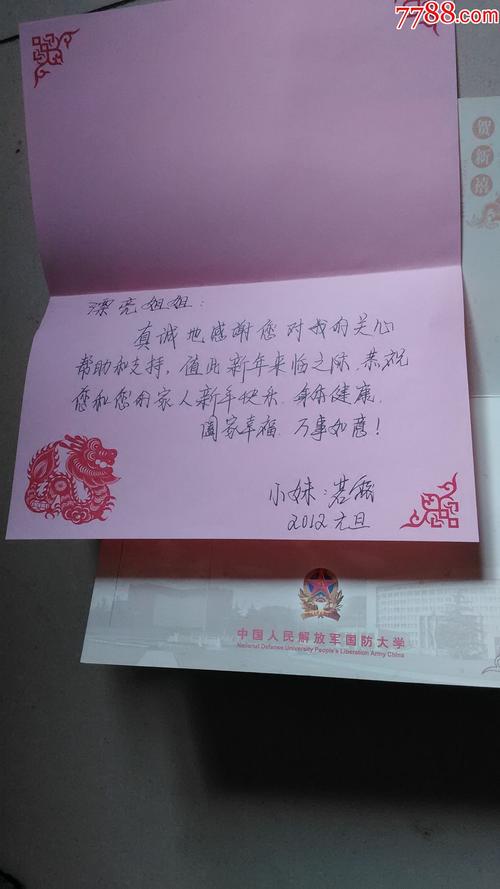 7788.com
贺
新
禧
漂亮姐姐：
真诚地感谢您对我的关心
帮助和支持，值此新年来临之际，恭祝
您和您的家人新年快乐，身体健康，
阖家幸福，万事如意！
小妹：若
2012元旦
中国人民解放军国防大学
National Defense University People's Liberation Army China